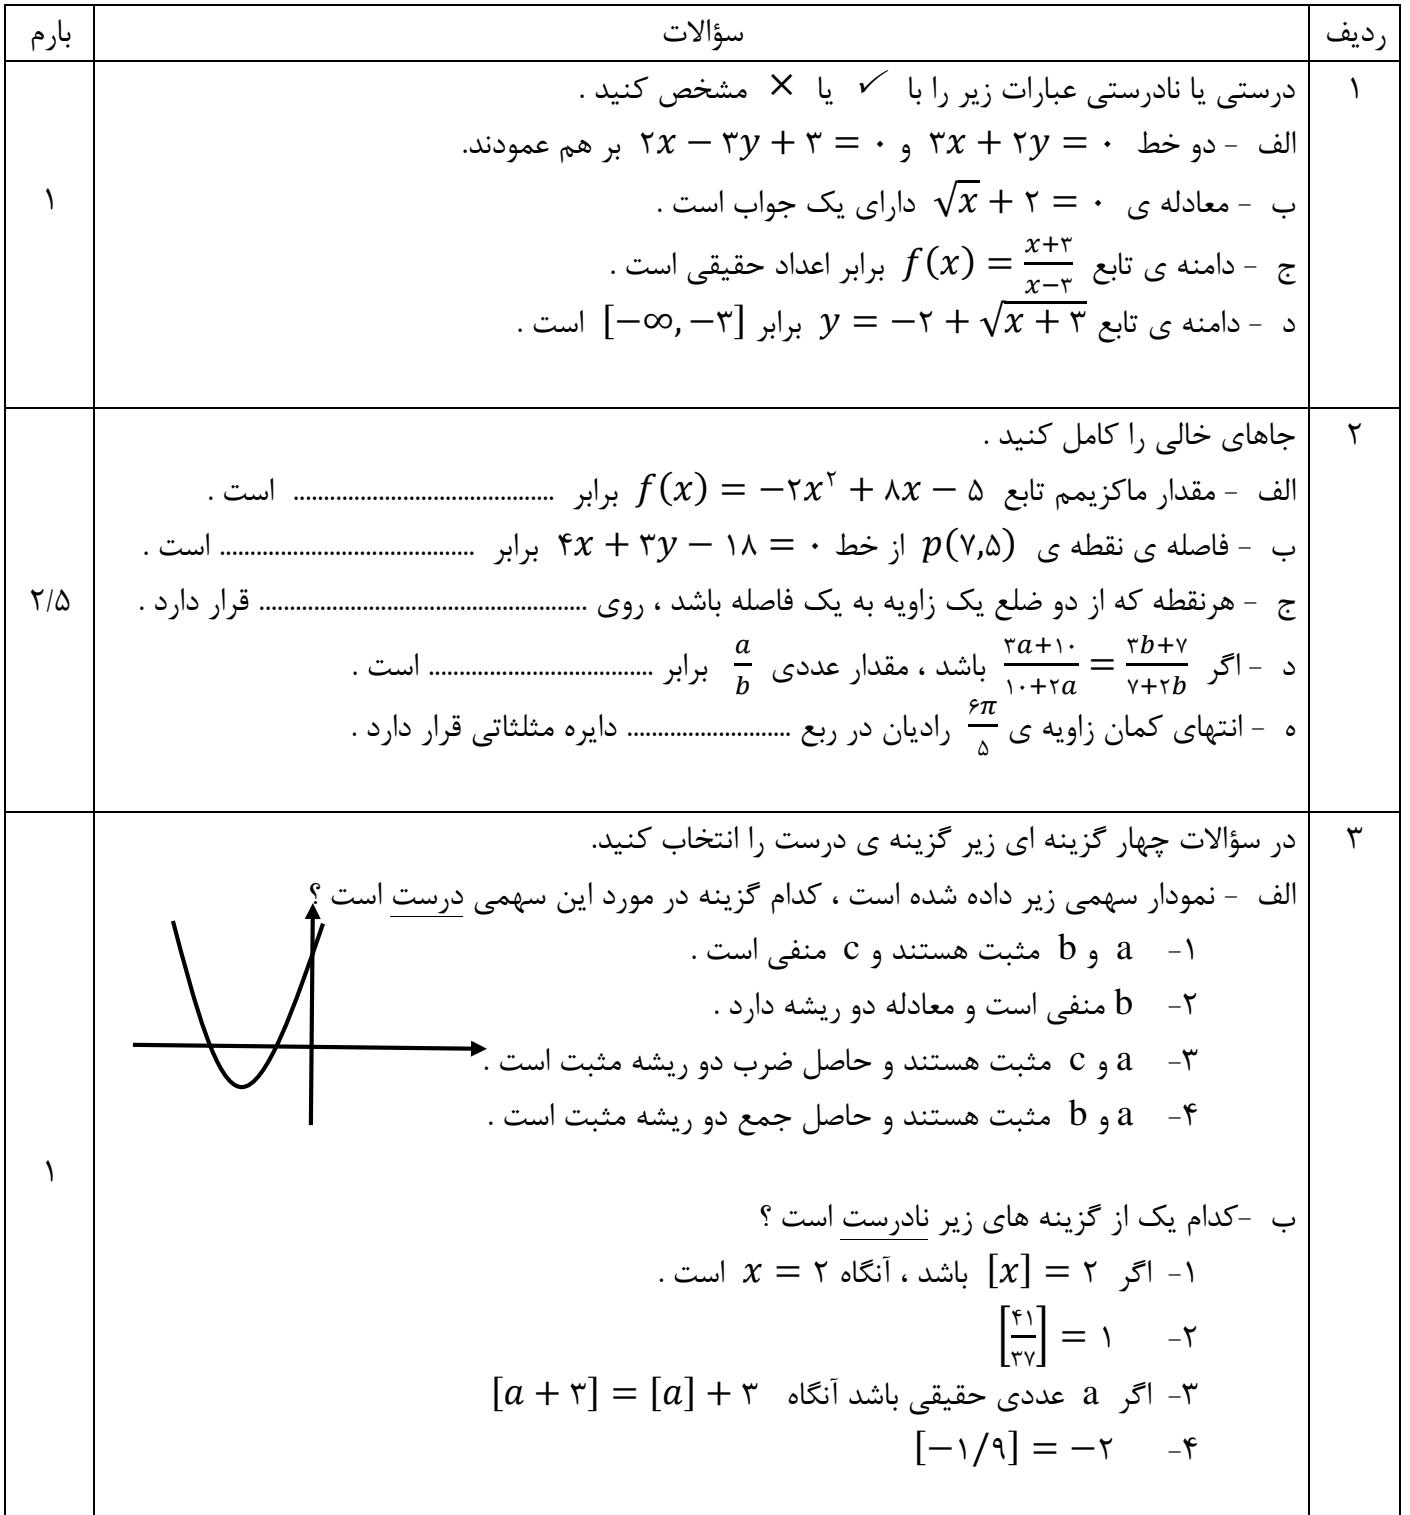 ردیف سؤالات بارم
۱ درستی یا نادرستی عبارات زیر را با ✓ یا × مشخص کنید .
الف - دو خط ۳x + ۲y = ۰ و ۲x − ۳y + ۳ = ۰ بر هم عمودند.
ب - معادله ی √x + ۲ = ۰ دارای یک جواب است .
ج - دامنه ی تابع f(x) = (x+۳)/(x−۳) برابر اعداد حقیقی است .
د - دامنه ی تابع y = −۲ + √(x + ۳) برابر [−∞, −۳] است .
۱
۲ جاهای خالی را کامل کنید .
الف - مقدار ماکزیمم تابع f(x) = −۲x² + ۸x − ۵ برابر ........................................... است .
ب - فاصله ی نقطه ی p(۷,۵) از خط ۴x + ۳y − ۱۸ = ۰ برابر .......................................... است .
ج - هرنقطه که از دو ضلع یک زاویه به یک فاصله باشد ، روی ...................................................... قرار دارد .
د - اگر (۳a+۱۰)/(۱۰+۲a) = (۳b+۷)/(۷+۲b) باشد ، مقدار عددی a/b برابر ..................................... است .
ه - انتهای کمان زاویه ی ۶π/۵ رادیان در ربع ........................... دایره مثلثاتی قرار دارد .
۲/۵
۳ در سؤالات چهار گزینه ای زیر گزینه ی درست را انتخاب کنید.
الف - نمودار سهمی زیر داده شده است ، کدام گزینه در مورد این سهمی درست است ؟
۱- a و b مثبت هستند و c منفی است .
۲- b منفی است و معادله دو ریشه دارد .
۳- a و c مثبت هستند و حاصل ضرب دو ریشه مثبت است .
۴- a و b مثبت هستند و حاصل جمع دو ریشه مثبت است .
۱
ب -کدام یک از گزینه های زیر نادرست است ؟
۱- اگر [x] = ۲ باشد ، آنگاه x = ۲ است .
۲- [۴۱/۳۷] = ۱
۳- اگر a عددی حقیقی باشد آنگاه [a + ۳] = [a] + ۳
۴- [−۱/۹] = −۲